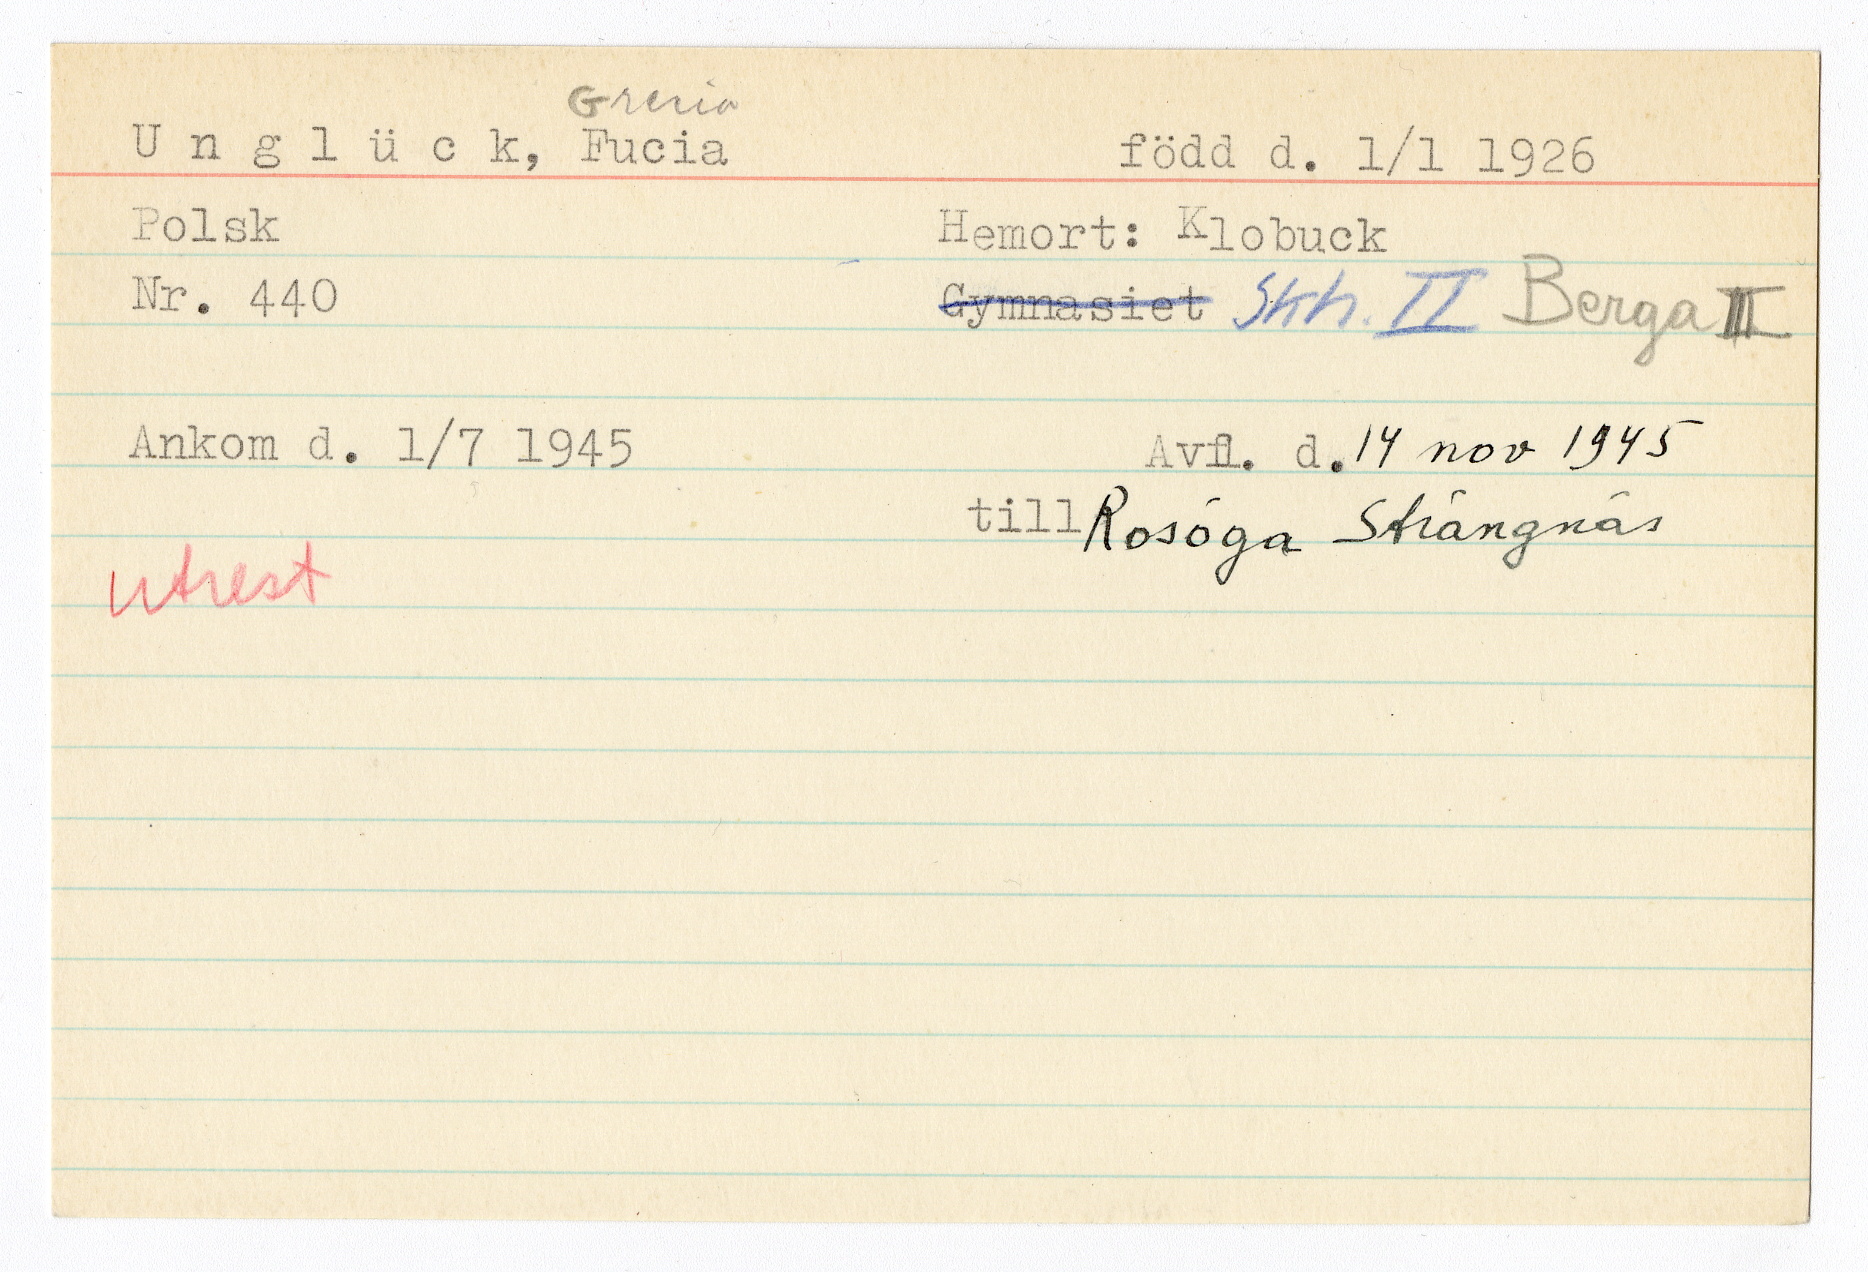 Grenia
U n g l ü c k, Fucia född d. 1/1 1926
Polsk Hemort: Klobuck
Nr. 440 Gymnasiet Skh. II Berga III
Ankom d. 1/7 1945 Avfl. d. 14 nov 1945
till Rosöga Strängnäs
utrest